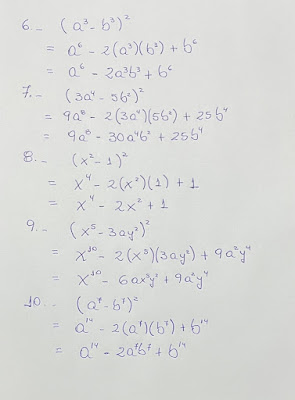 6.- (a³ - b³)²
= a⁶ - 2(a³)(b³) + b⁶
= a⁶ - 2a³b³ + b⁶
7.- (3a⁴ - 5b²)²
= 9a⁸ - 2(3a⁴)(5b²) + 25b⁴
= 9a⁸ - 30a⁴b² + 25b⁴
8.- (x² - 1)²
= x⁴ - 2(x²)(1) + 1
= x⁴ - 2x² + 1
9.- (x⁵ - 3ay²)²
= x¹⁰ - 2(x⁵)(3ay²) + 9a²y⁴
= x¹⁰ - 6ax⁵y² + 9a²y⁴
10.- (a⁷ - b⁷)²
= a¹⁴ - 2(a⁷)(b⁷) + b¹⁴
= a¹⁴ - 2a⁷b⁷ + b¹⁴